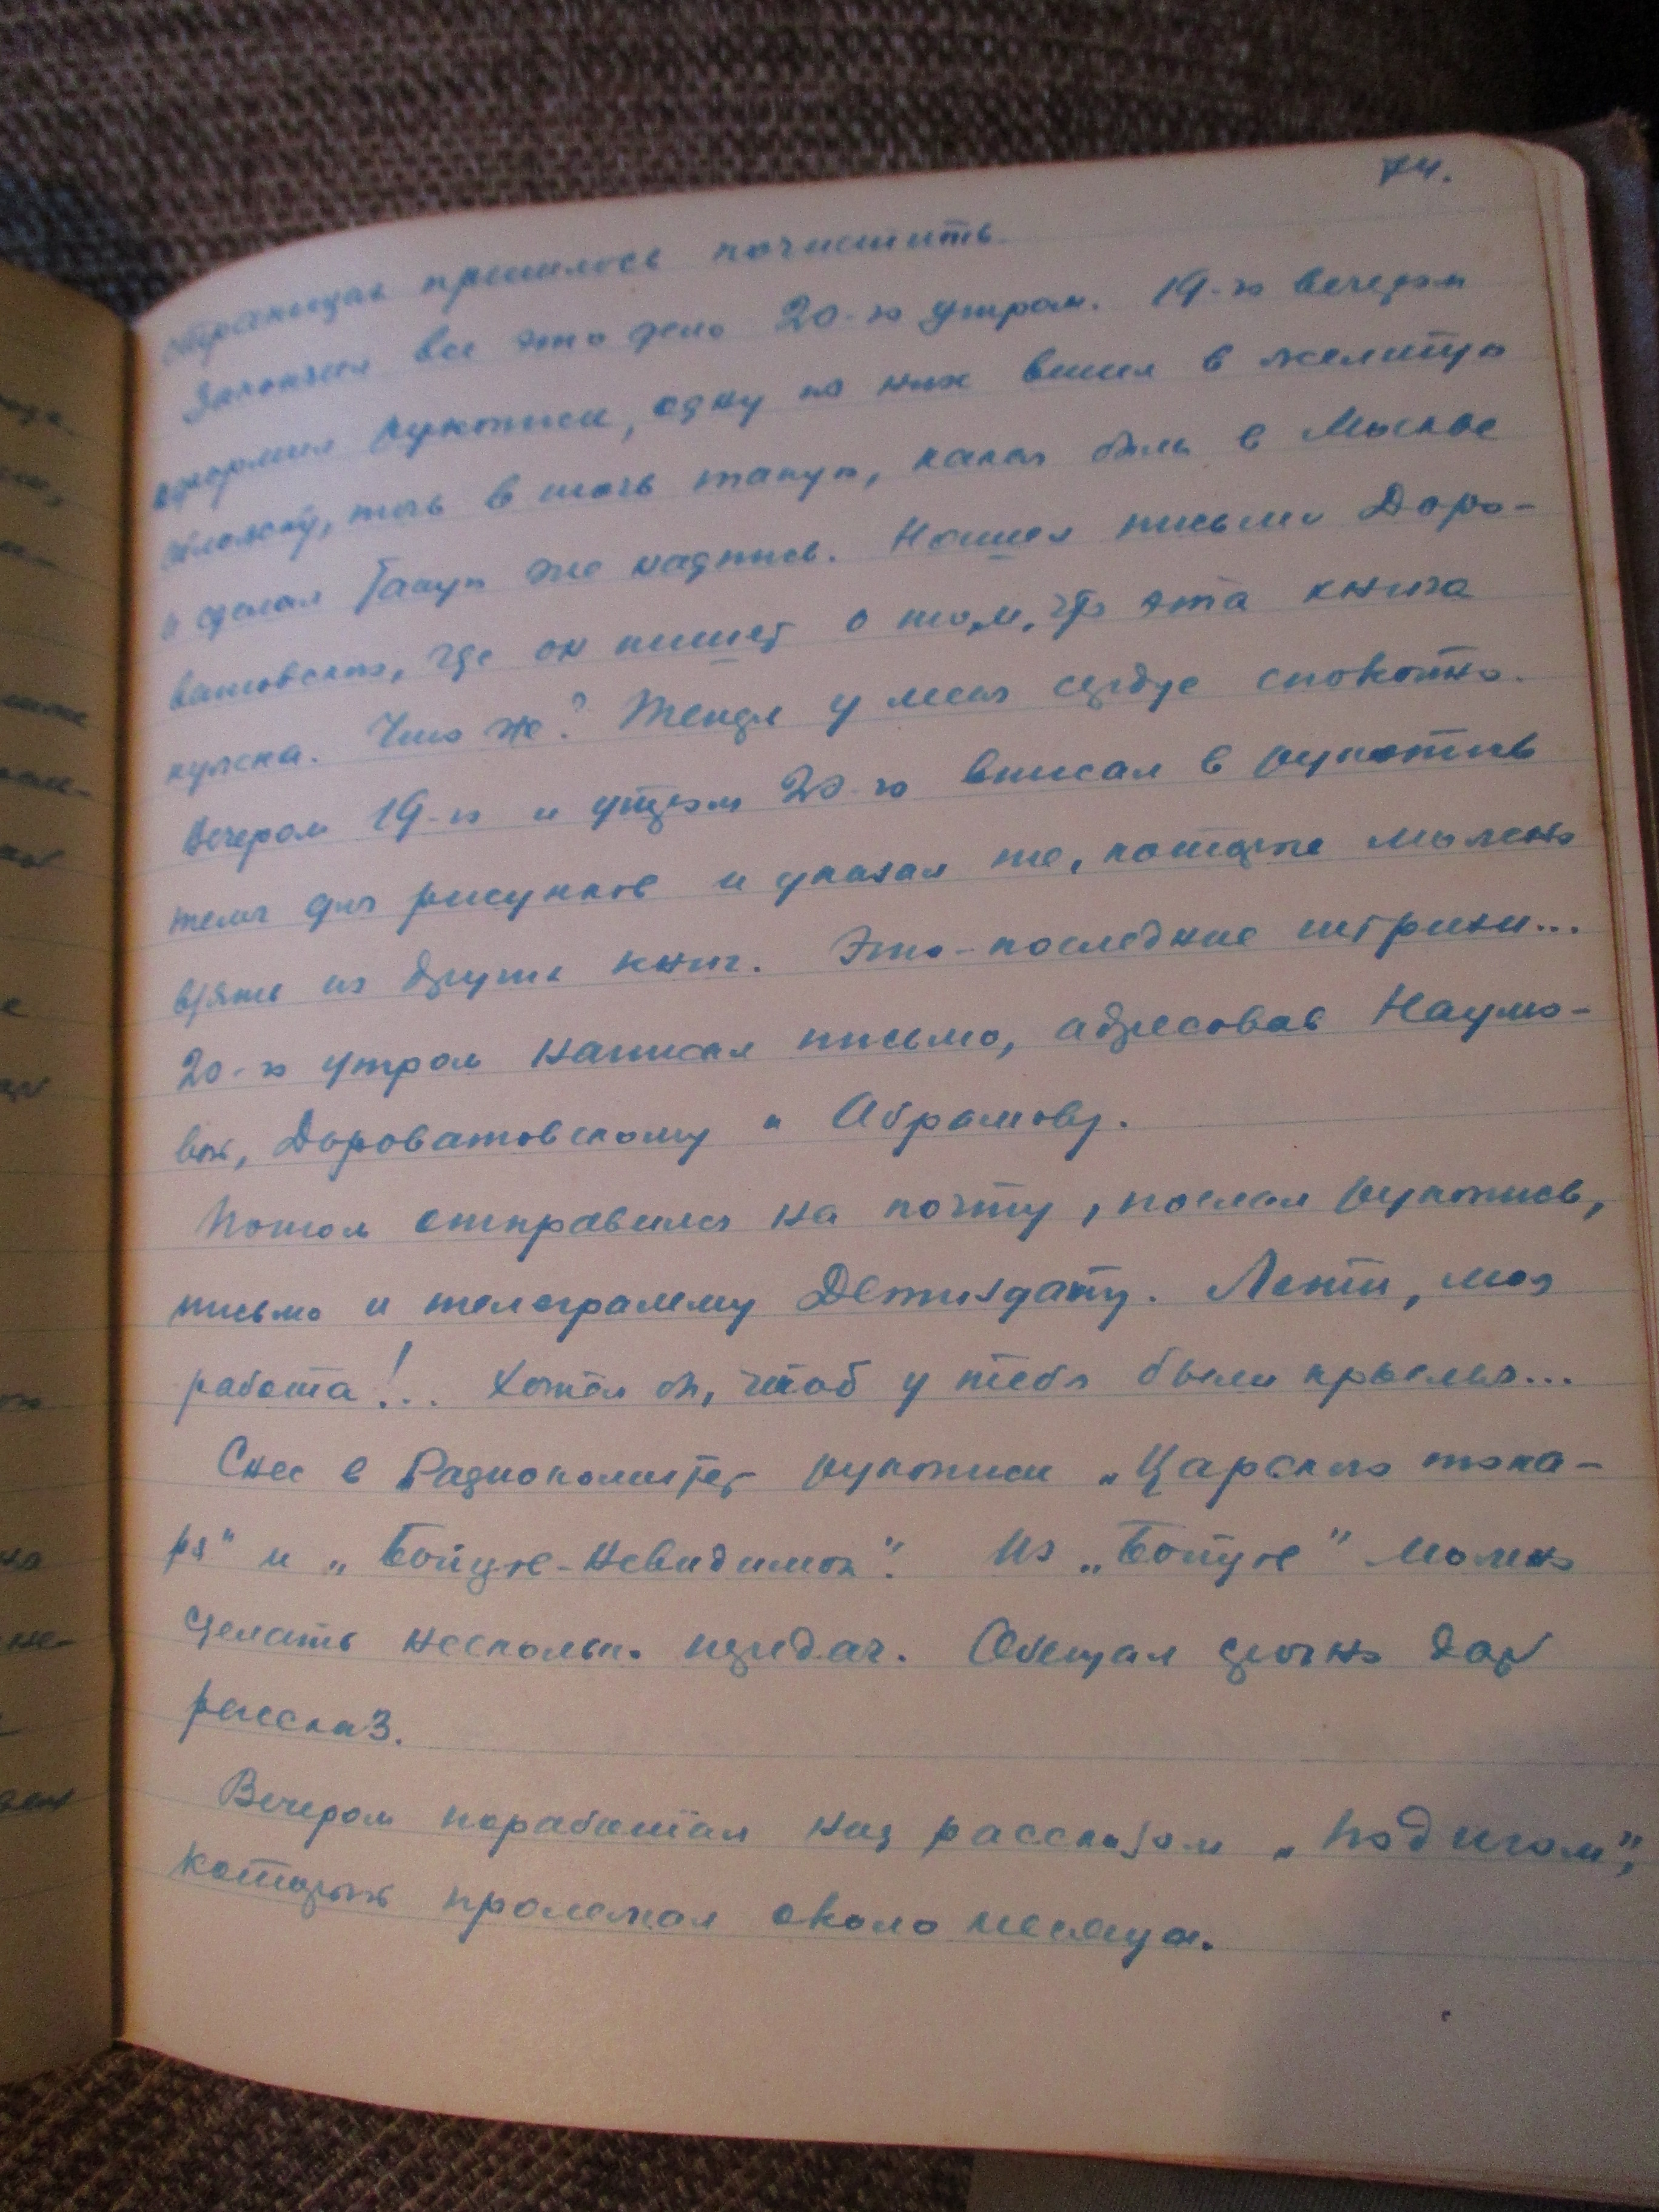 74.
страницах пришлось почистить.
Закончил все это дело 20-го утром. 19-го вечером
оформил рукописи, одну из них вшил в желтую
обложку, точь в точь такую, какая была в Москве
и сделал такую же надпись. Нашел письмо Доро-
ватовского, где он пишет о том, что эта книга
нужна. Что же? Теперь у меня сердце спокойно.
Вечером 19-го и утром 20-го вписал в рукопись
темы для рисунков и указал те, которые можно
взять из других книг. Это - последние штрихи...
20-го утром написал письмо, адресовав Наумо-
вой, Дороватовскому и Абрамову.
Потом отправился на почту, послал рукопись,
письмо и телеграмму Детиздату. Лети, моя
работа!.. Хотел бы, чтоб у тебя были крылья...
Снес в Радиокомитет рукописи „Царского тока-
ря" и „Бойцов-невидимок". Из „Бойцов" можно
сделать нескольк. передач. Обещал срочно дать
рассказ.
Вечером поработал над рассказом „Под игом",
который пролежал около месяца.